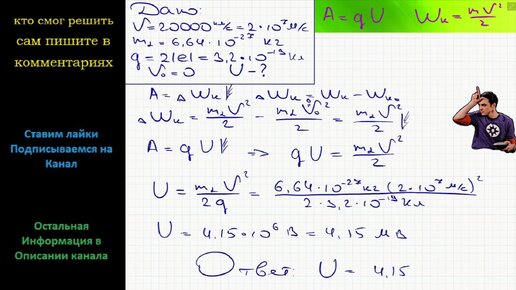 кто смог решить
сам пишите в
комментариях
Ставим лайки
Подписываемся на
Канал
Остальная
Информация в
Описании канала
Дано:
V = 20000 км/с = 2·10⁷ м/с
m₂ = 6,64·10⁻²⁷ кг
q = 2|e| = 3,2·10⁻¹⁹ Кл
V₀ = 0 U - ?
A = qU Wк = mV²/2
A = ΔWк ΔWк = Wк - Wк₀
ΔWк = m₂V²/2 - m₂V₀²/2 = m₂V²/2
A = qU => qU = m₂V²/2
U = m₂V²/2q = 6,64·10⁻²⁷ кг (2·10⁷ м/с)²/2·3,2·10⁻¹⁹ Кл
U = 4,15·10⁶ В = 4,15 МВ
Ответ: U = 4,15